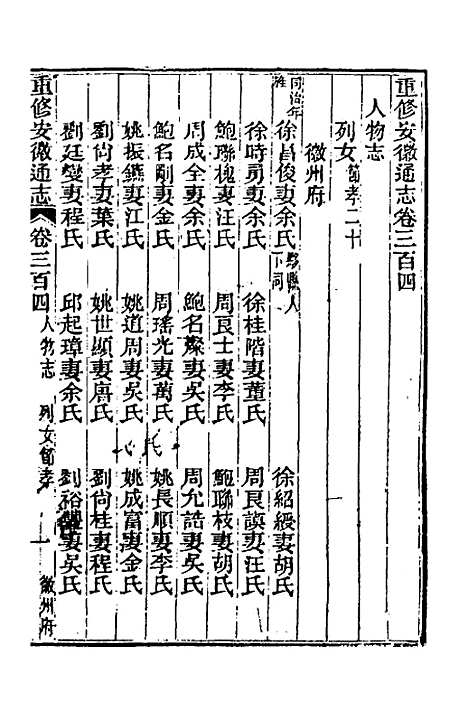 重修安徽通志卷三百四
人物志
列女節孝二十
徽州府
同治年
旌
徐昌俊妻余氏 黟縣人下同 徐紹綬妻胡氏
徐時勇妻余氏 徐桂階妻董氏 周良謨妻汪氏
鮑聯槐妻汪氏 周良士妻李氏 鮑聯枝妻胡氏
周成全妻余氏 鮑名燦妻吳氏 周允誥妻吳氏
鮑名剛妻金氏 周瑤光妻萬氏 姚長順妻李氏
姚振鑣妻江氏 姚道周妻吳氏 姚成富妻金氏
劉尚孝妻葉氏 姚世顯妻唐氏 劉尚桂妻程氏
劉廷燮妻程氏 邱起璋妻余氏 劉裕妻吳氏
重修安徽通志 卷三百四 人物志 列女節孝 一 徽州府